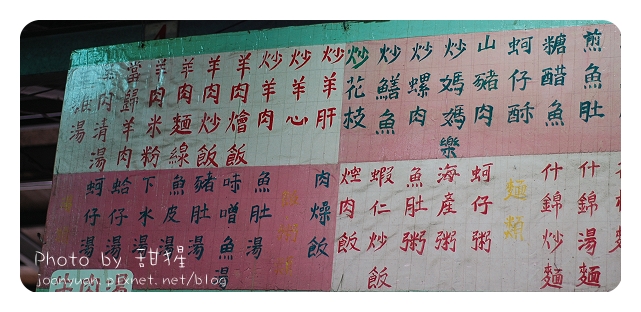 煎魚肚
糖醋魚
蚵仔酥
山豬肉
炒媽媽樂
炒螺肉
炒鱔魚
炒花枝
炒羊肝
炒羊心
炒羊肉
羊肉燴飯
羊肉炒飯
羊肉麵線
羊肉米粉
當歸羊肉
羊肉清湯
什錦湯麵
什錦炒麵
麵類
蚵仔粥
海產粥
魚肚粥
蝦仁炒飯
焢肉飯
肉燥飯
魚肚湯
味噌魚湯
豬肚湯
魚皮湯
下水湯
蛤仔湯
蚵仔湯
Photo by 甜猩
joanyuan.pixnet.net/blog